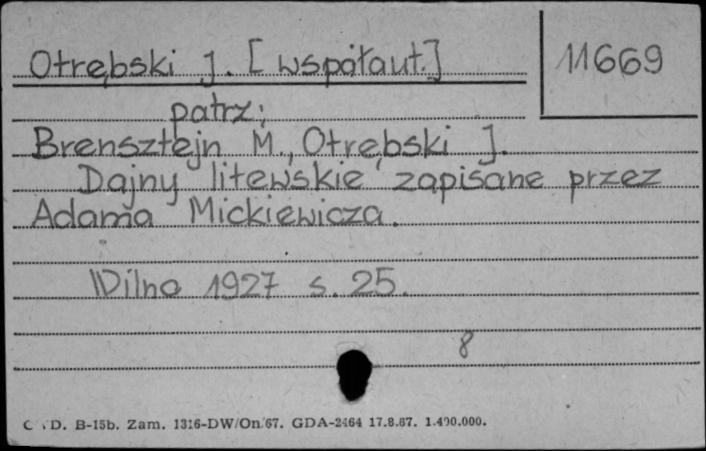 Otrębski J. [współaut.]
11669
patrz:
Brensztejn M., Otrębski J.
Dajny litewskie zapisane przez
Adama Mickiewicza.
Wilno 1927 s. 25.
8
D. B-15b. Zam. 1316-DW/On/67. GDA-2464 17.8.67. 1.400.000.